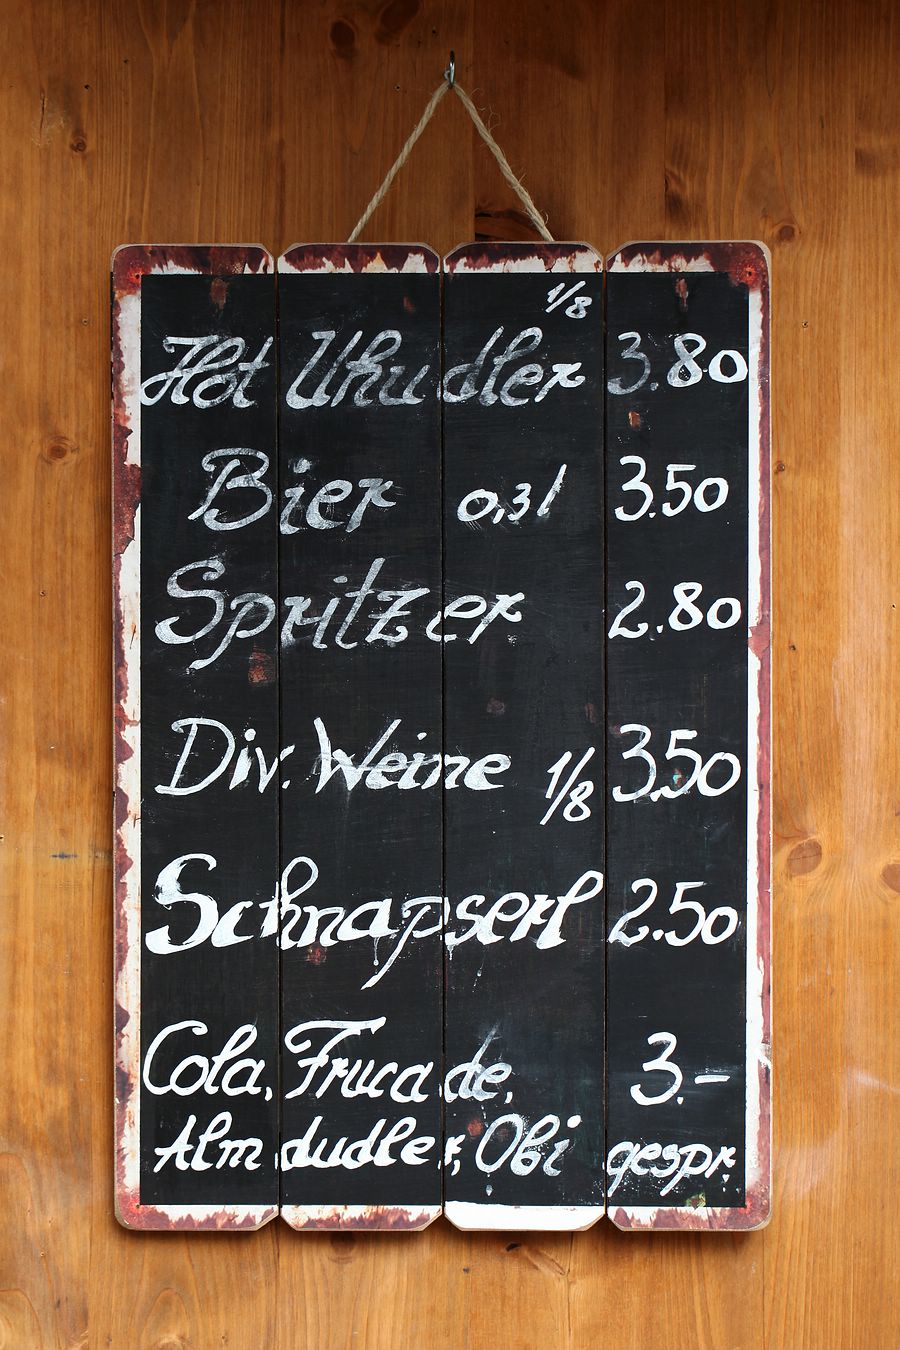 1/8
Hot Uhudler 3.80
Bier 0,3l 3.50
Spritzer 2.80
Div. Weine 1/8 3.50
Schnapserl 2.50
Cola, Frucade, 3.-
Almdudler, Obi gespr.